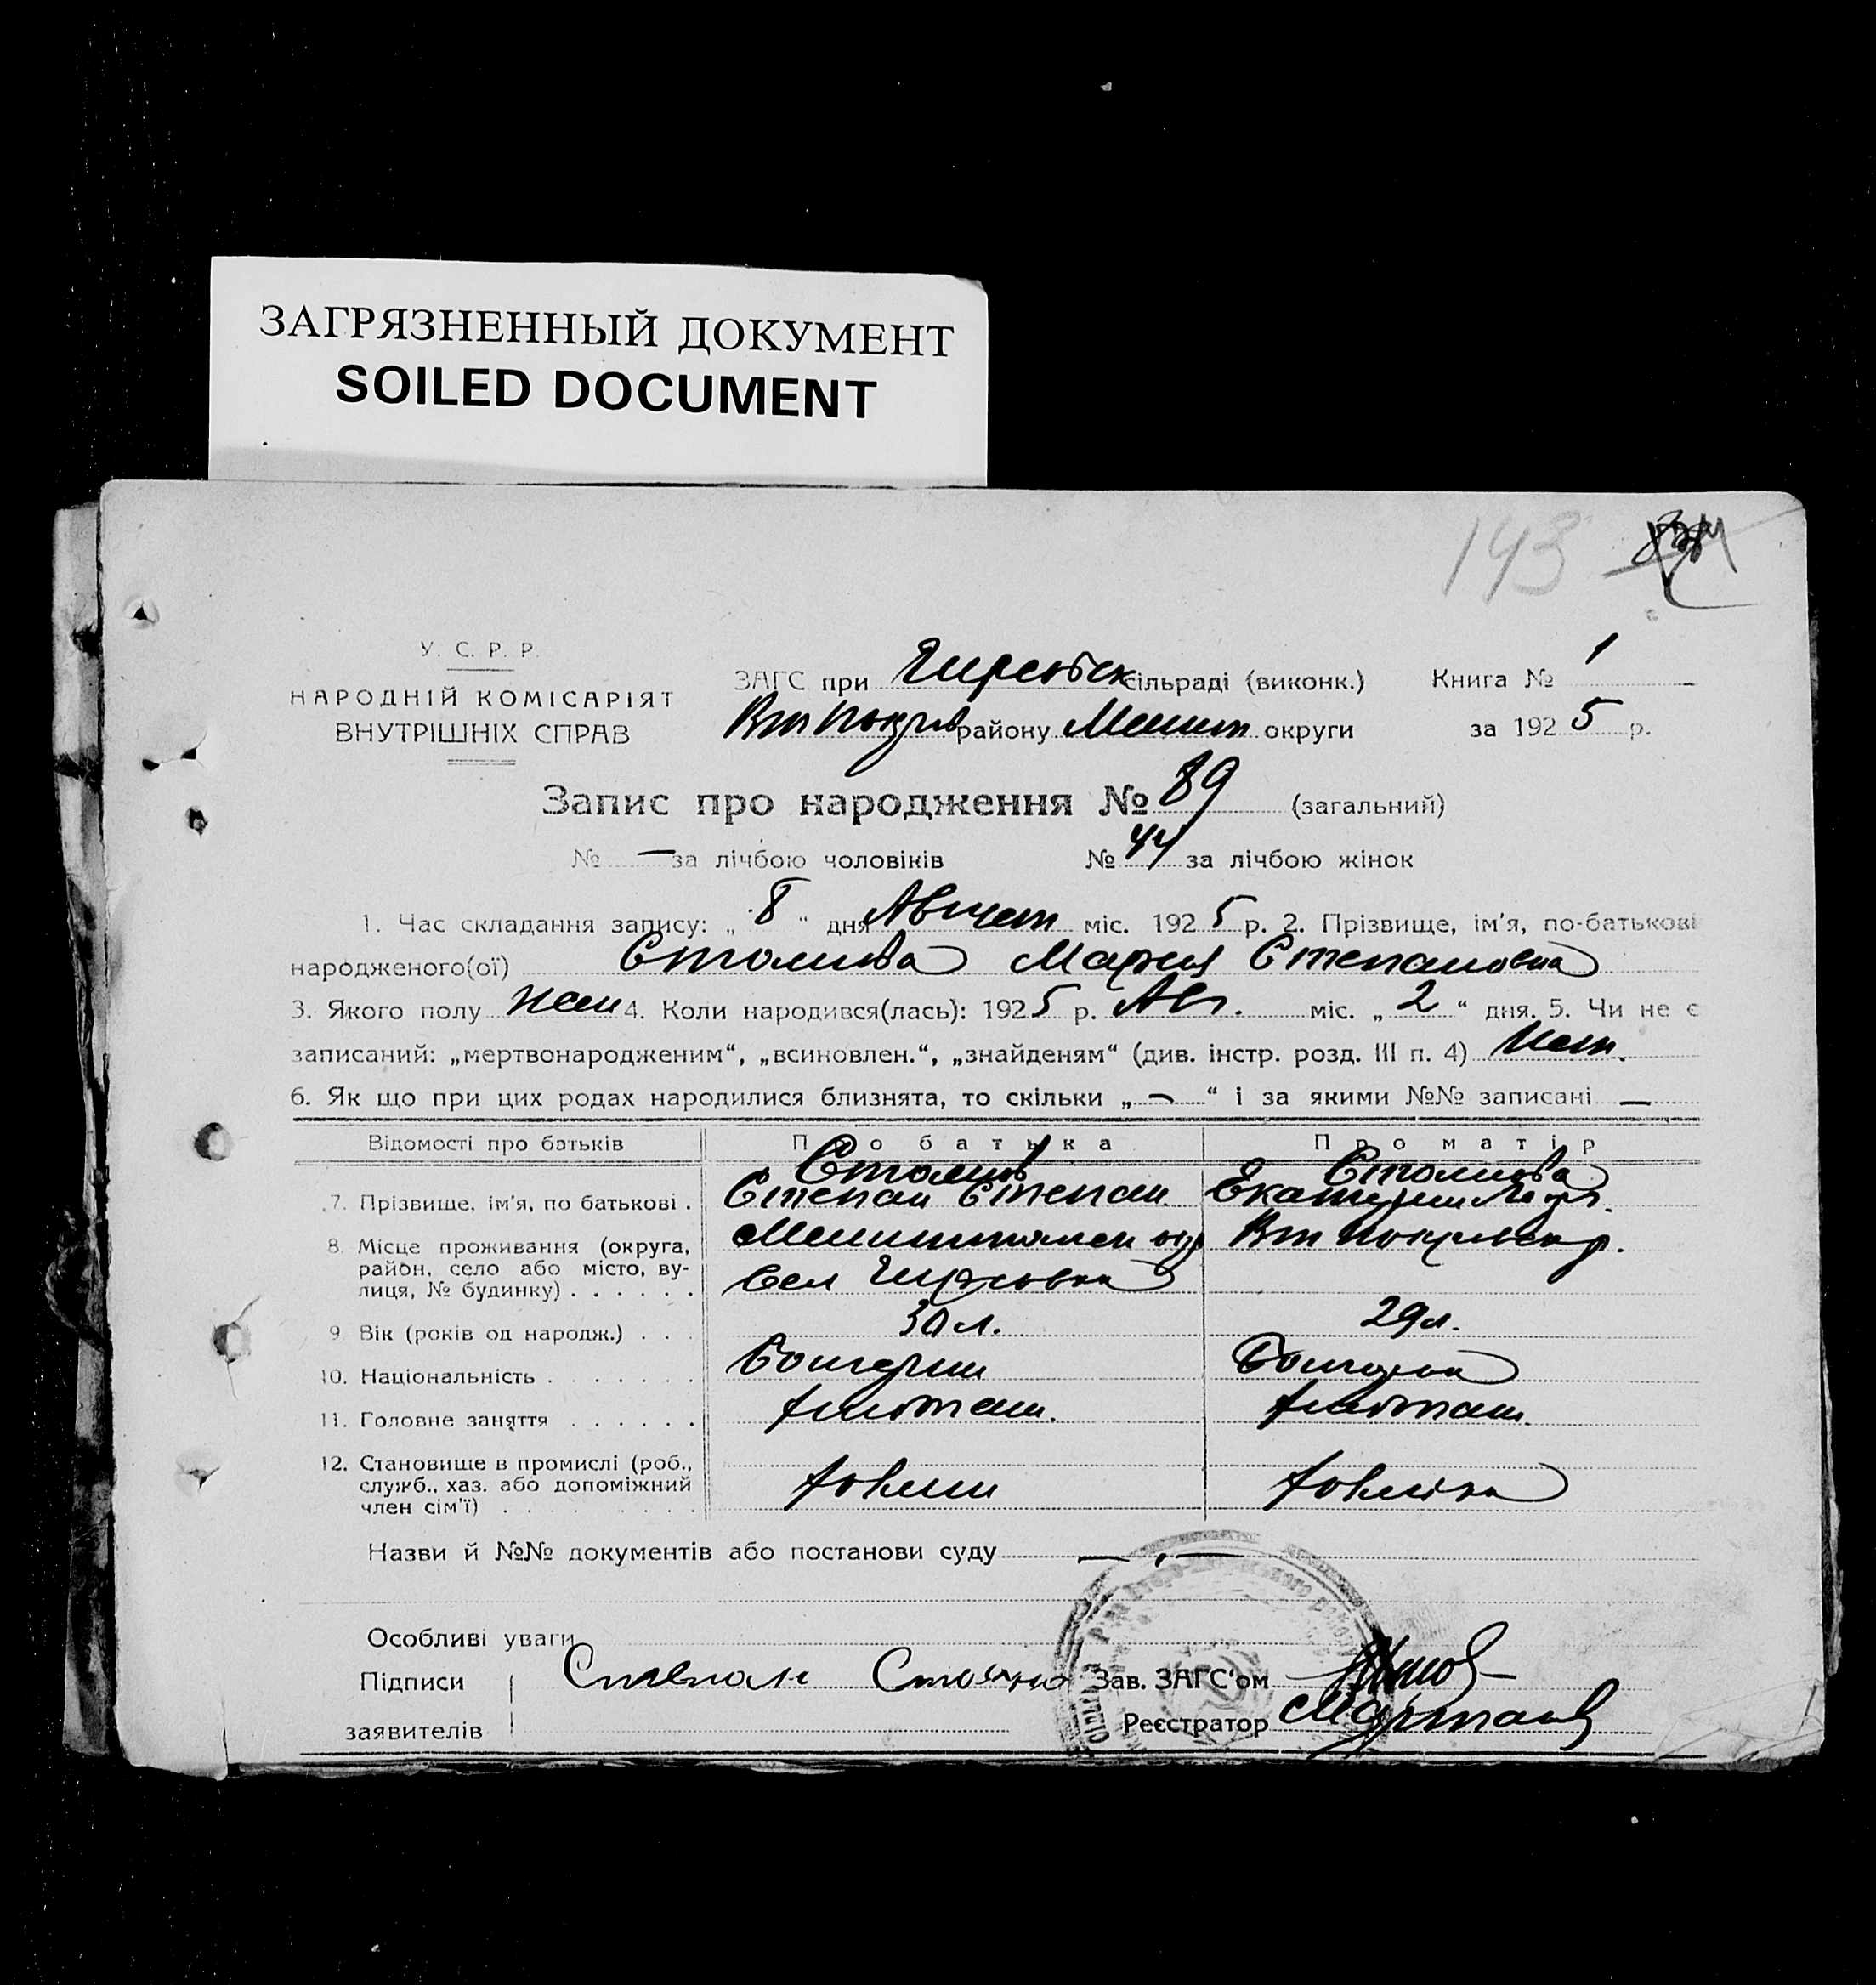 ЗАГРЯЗНЕННЫЙ ДОКУМЕНТ
SOILED DOCUMENT
143
У. С. Р. Р.
НАРОДНІЙ КОМІСАРІЯТ
ВНУТРІШНІХ СПРАВ
ЗАГС при Гирсовск сільраді (виконк.) Книга № 1
Вт Покров району Мелит округи за 1925 р.
Запис про народження № 89 (загальний)
№ — за лічбою чоловіків № 44 за лічбою жінок
1. Час складання запису: „ 8 “ дня Август міс. 1925 р. 2. Прізвище, ім'я, по-батькові
народженого(ої) Стоянова Мария Степановна
3. Якого полу жен 4. Коли народився(лась): 1925 р. Авг. міс. „ 2 “ дня. 5. Чи не є
записаний: „мертвонародженим“, „всиновлен.“, „знайденям“ (див. інстр. розд. III п. 4) Нет.
6. Як що при цих родах народилися близнята, то скільки „ — “ і за якими №№ записані —
Відомості про батьків Про батька Про матір
Стоянов Стоянова
7. Прізвище, ім'я, по батькові . Степан Степан. Екатерина
8. Місце проживання (округа, Мелитопольск окр Вт Покровск р.
район, село або місто, ву-
лиця, № будинку) . . . . . . Сел Гирсовка
9. Вік (років од народж.) . . . 30 л. 29 л.
10. Національність . . . . . . . Болгарин Болгарка
11. Головне заняття . . . . . . хлебопаш. хлебопаш.
12. Становище в промислі (роб.,
служб., хаз. або допоміжний хозяин хозяйка
член сім'ї) . . . . . . . .
Назви й №№ документів або постанови суду — „ —
Особливі уваги
Підписи Степан Стояно Зав. ЗАГС'ом
заявителів Реєстратор